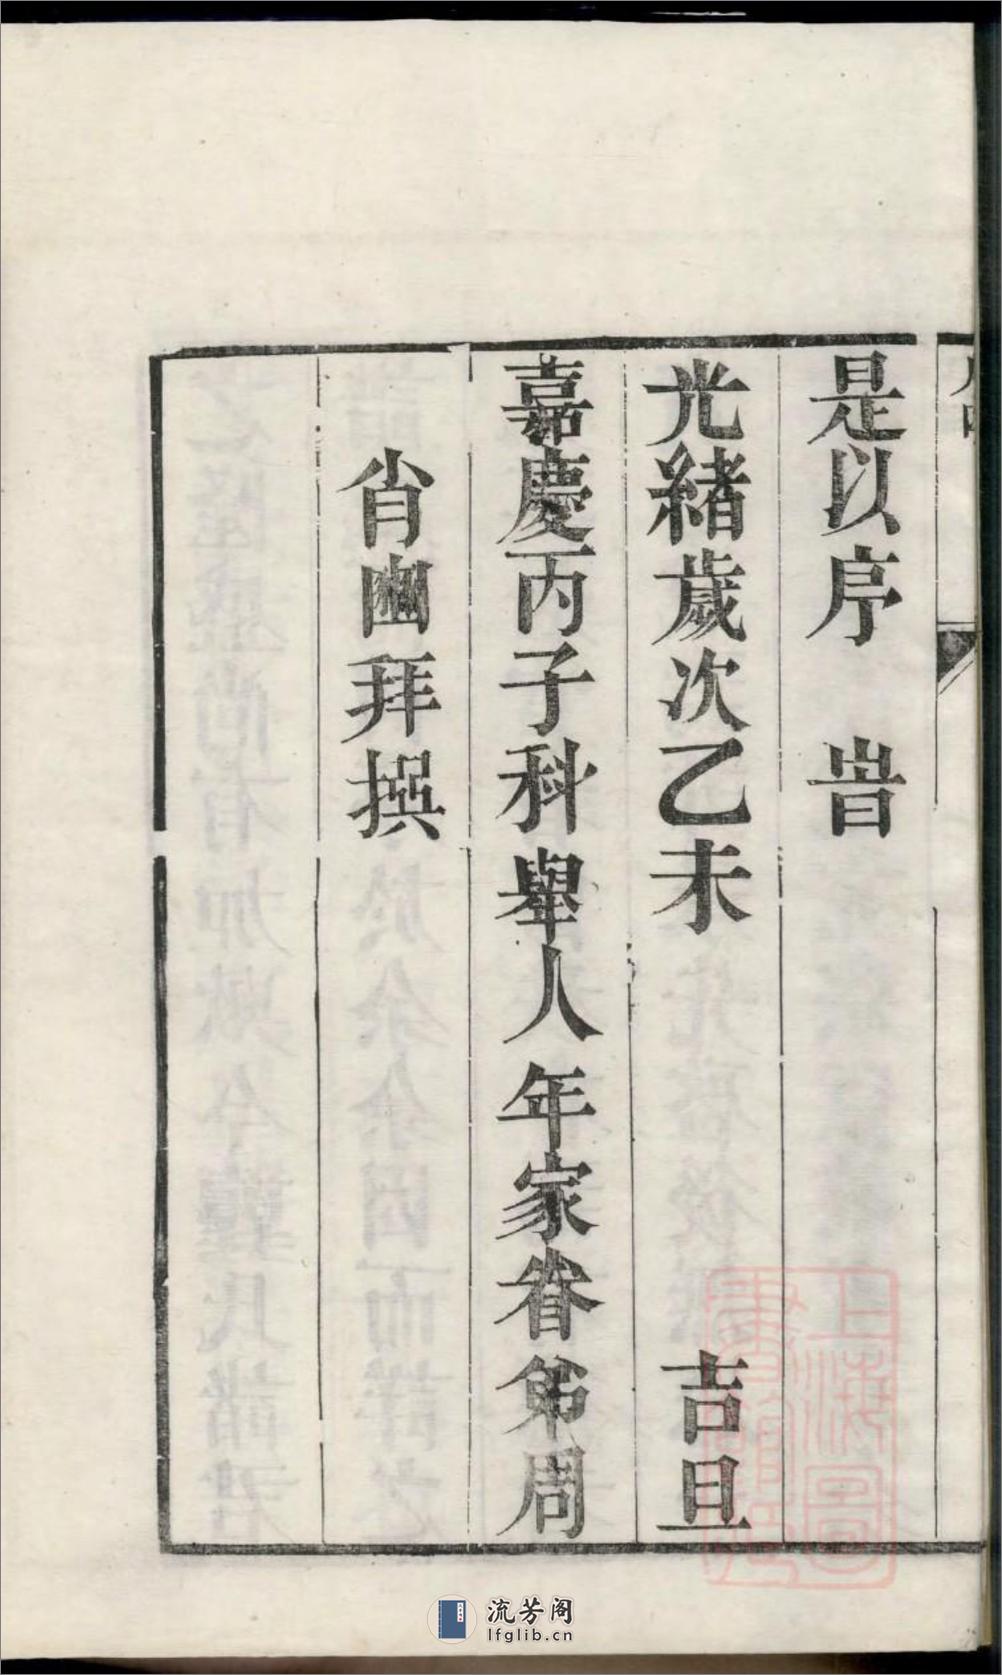 是以序 旹
光緒歲次乙未 吉旦
嘉慶丙子科舉人年家眷弟周
肖豳拜撰
上海圖
書館藏
流芳阁
lfglib.cn